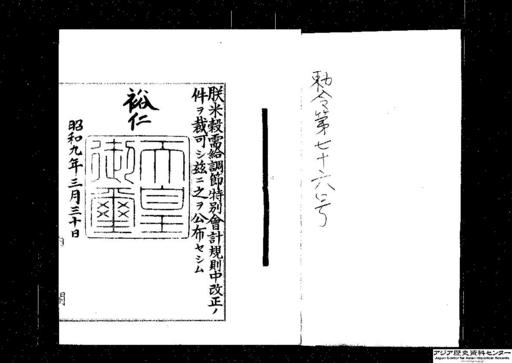 勅令第七十六号
朕米穀需給調節特別會計規則中改正ノ
件ヲ裁可シ茲ニ之ヲ公布セシム
裕仁
天皇
御璽
昭和九年三月三十日
内閣
アジア歴史資料センター
Japan Center for Asian Historical Records